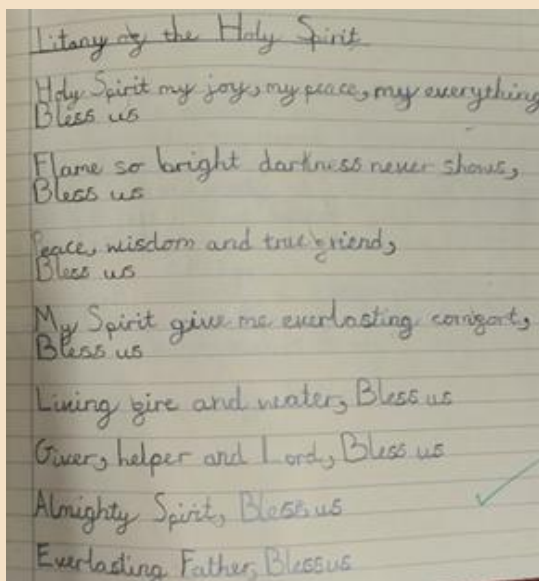 Litany of the Holy Spirit
Holy Spirit my joy, my peace, my everything
Bless us
Flame so bright darkness never shows,
Bless us
Peace, wisdom and true friend,
Bless us
My Spirit give me everlasting comfort,
Bless us
Living fire and water, Bless us
Giver, helper and Lord, Bless us
Almighty Spirit, Bless us
Everlasting Father, Bless us